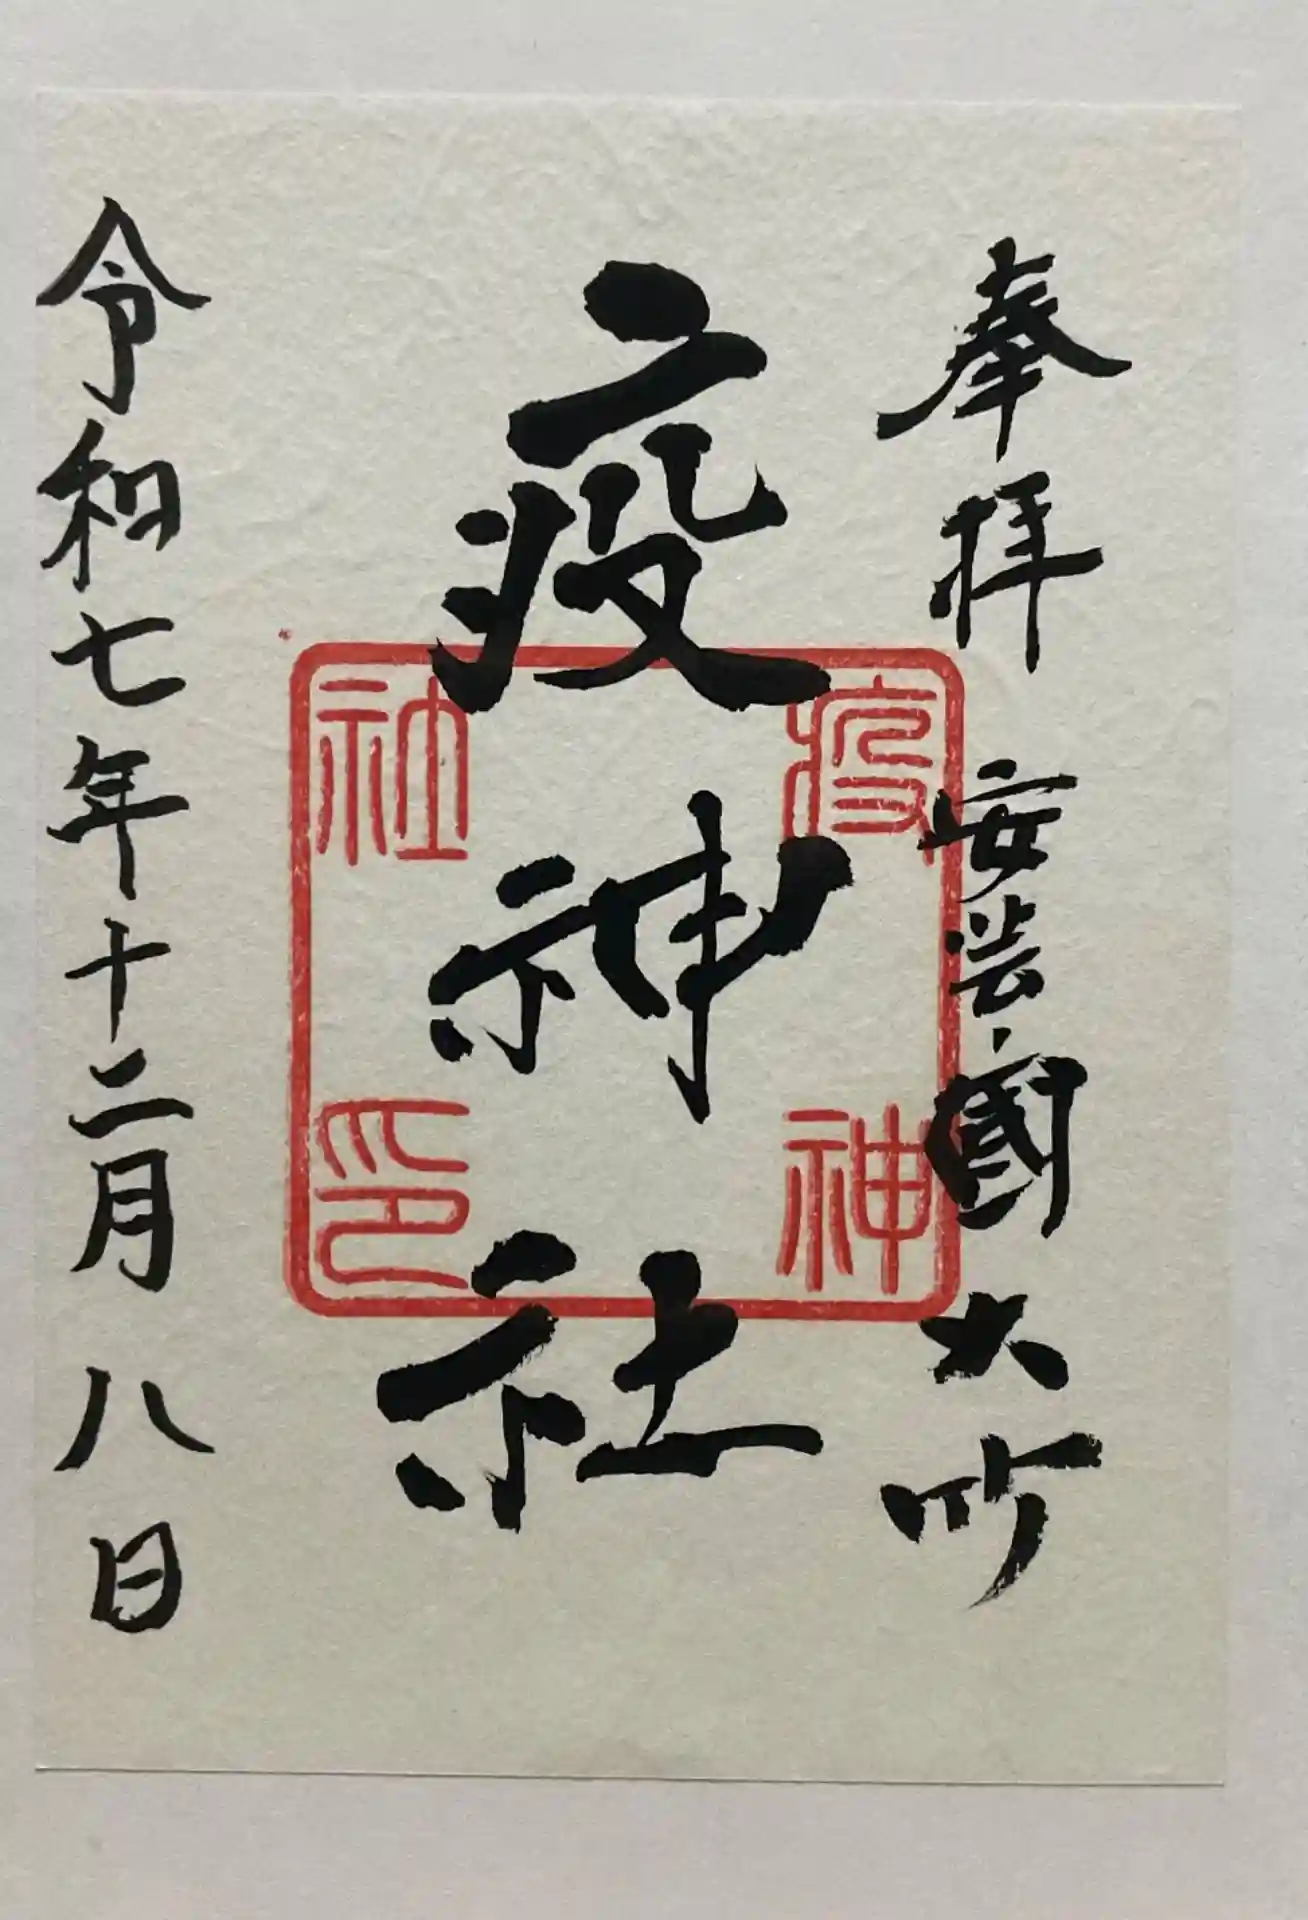 奉拝 安芸國大竹
疫神社
疫神社印
令和七年十二月八日